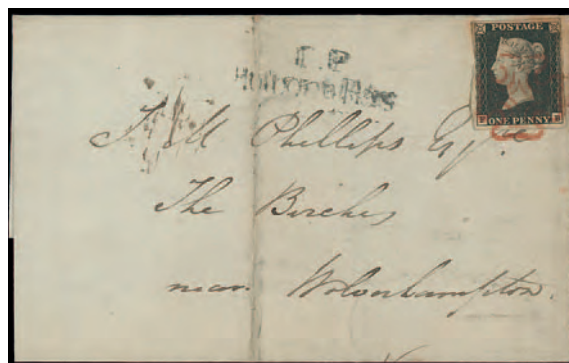 POSTAGE
ONE PENNY
T.P
Phillips Esqre
The Birches
near Wolverhampton.